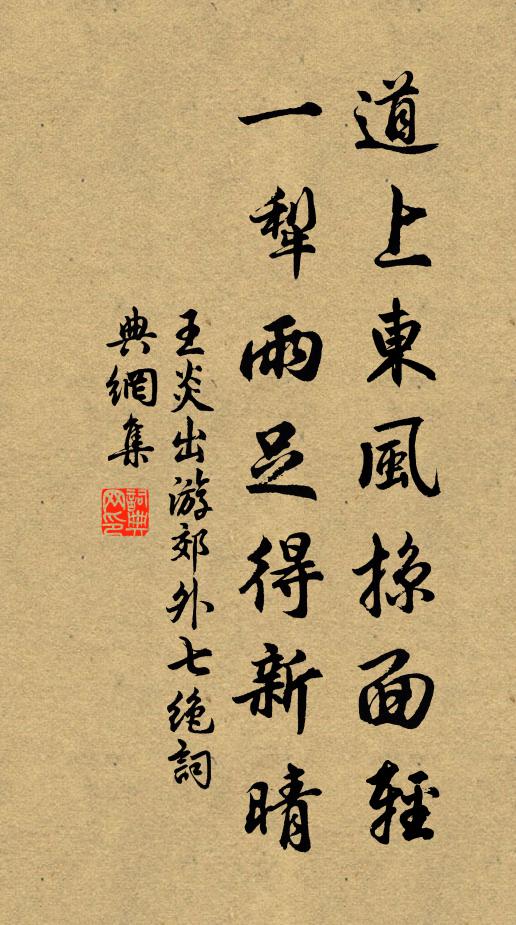 道上東風掠面輕
一犂雨足得新晴
王炎出游郊外七絶詞
典網集
詞典網印